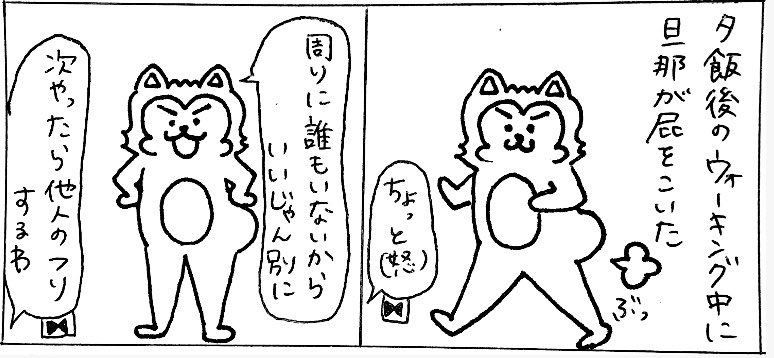 夕飯後のウォーキング中に
旦那が屁をこいた
ぶっ
ちょっと
(怒)
周りに誰もいないから
いいじゃん別に
次やったら他人のフリ
するわ